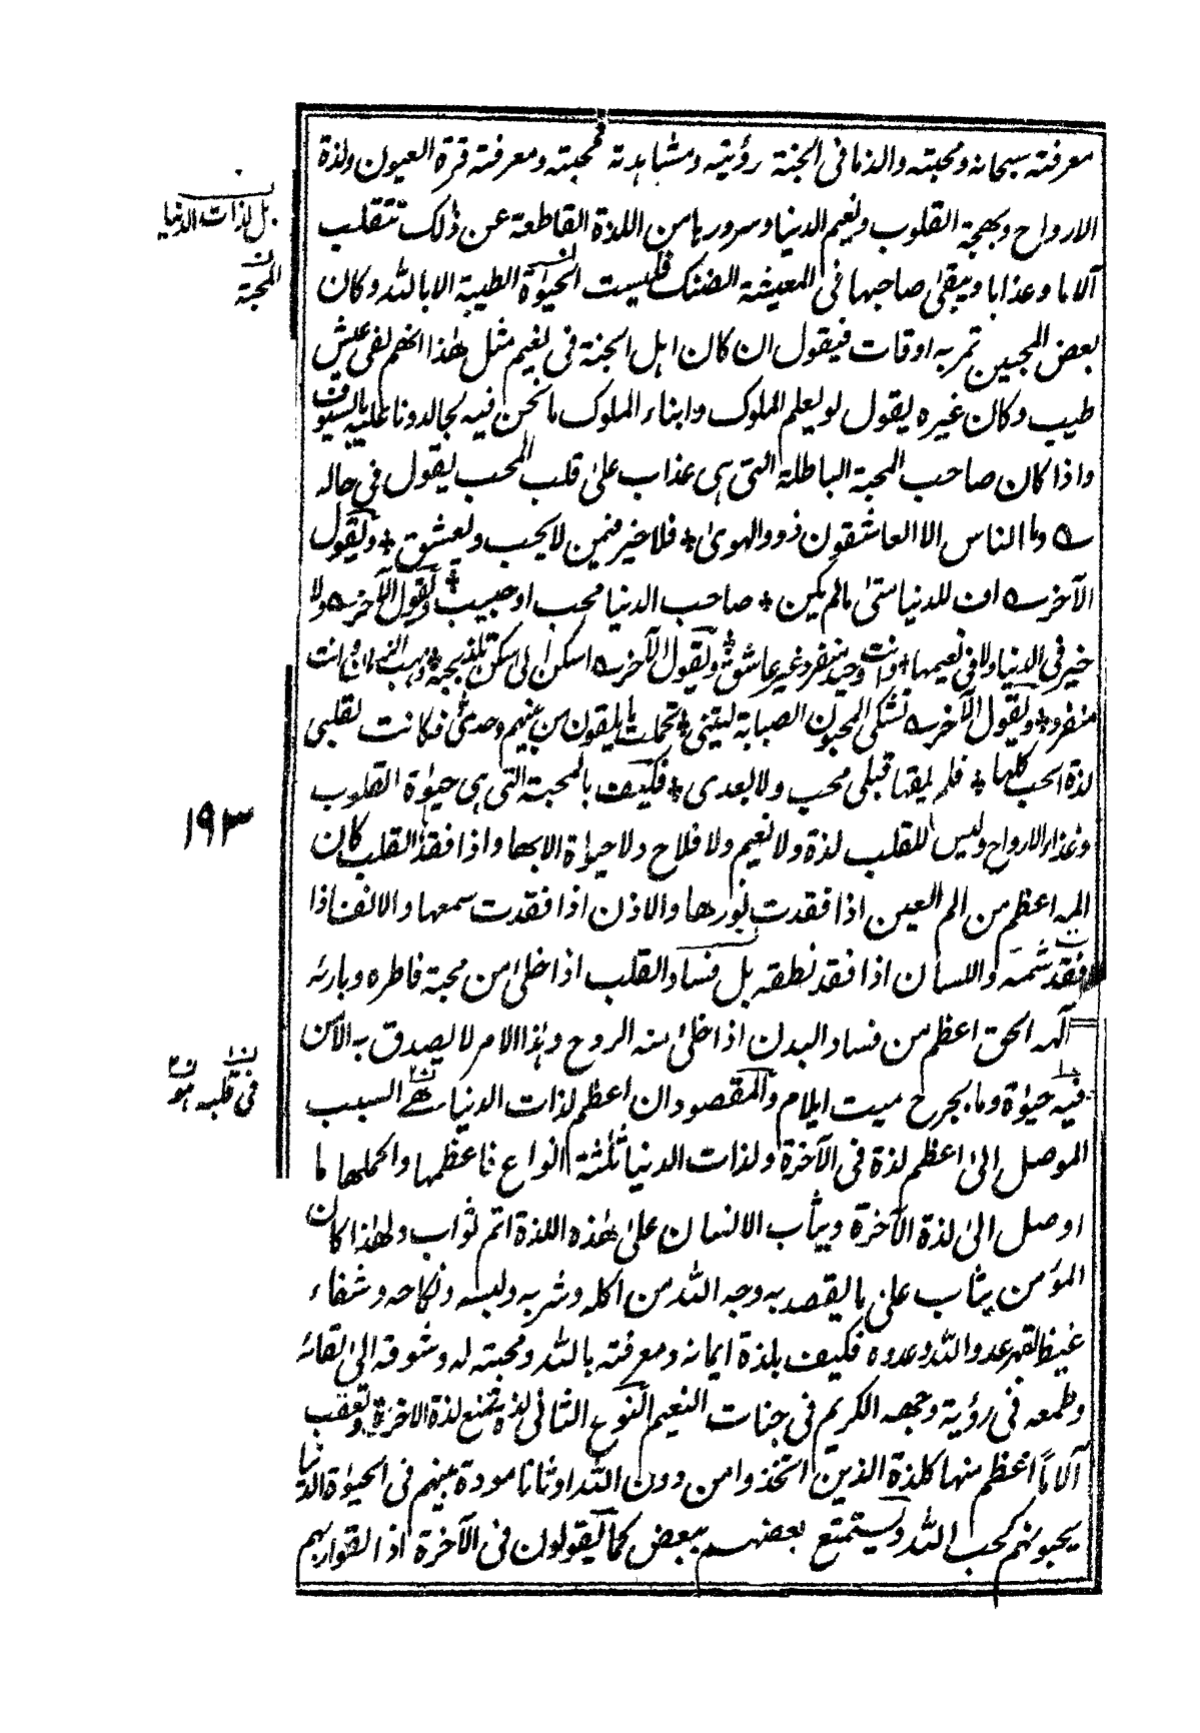 معرفته سبحانه ومحبته والذ ما فى الجنة رؤيته ومشاهدته فمحبته ومعرفته قرة العيون ولذة
الارواح وبهجة القلوب ونعيم الدنيا وسرورها من اللذة القاطعة عن ذلك تتقلب
آلاما وعذابا ويبقى صاحبها فى المعيشة الضنك فليست الحيوٰة الطيبة الا بالله وكان
بعض المحبين تمر به اوقات فيقول ان كان اهل الجنة فى نعيم مثل هٰذا انهم لفى عيش
طيب وكان غيره يقول لو يعلم الملوك وابناء الملوك ما نحن فيه لجالدونا عليه بالسيوف
واذا كان صاحب المحبة الباطلة التى هى عذاب على قلب المحب يقول فى حاله
ـه وما الناس الا العاشقون ذوو الهوى * فلا خير فيمن لا يحب ويعشق * ويقول
الآخر ـه اف للدنيا متى ما لم يكن * صاحب الدنيا محب او حبيب * ويقول الآخر ـه ولا
خير فى الدنيا ولا فى نعيمها * وانت وحيد منفرد غير عاشق * ويقول الآخر ـه اسكن الى سكن تلذ بحبه * ذهب الزمان وانت
منفرد * ويقول الآخر ـه تشكى المحبون الصبابة ليتنى * تحملت ما يلقون من بينهم وحدى * فكانت لقلبى
لذة الحب كلها * فلم يلقها قبلى محب ولا بعدى * فكيف بالمحبة التى هى حيوٰة القلوب
وغذاء الارواح وليس للقلب لذة ولا نعيم ولا فلاح ولا حياة الا بها واذا فقدها القلب كان
المه اعظم من الم العين اذا فقدت نورها والاذن اذا فقدت سمعها والانف اذا
فقد شمه واللسان اذا فقد نطقه بل فساد القلب اذا خلى من محبة فاطره وبارئه
الٰهه الحق اعظم من فساد البدن اذا خلى منه الروح وهٰذا الامر لا يصدق به الا من
فيه حيوٰة وما بجرح ميت ايلام والمقصود ان اعظم لذات الدنيا هى السبب
الموصل الى اعظم لذة فى الآخرة ولذات الدنيا ثلثة انواع فاعظمها واكملها ما
اوصل الى لذة الآخرة ويثاب الانسان على هٰذه اللذة اتم ثواب ولهٰذا كان
المؤمن يثاب على ما يقصد به وجه الله من اكله وشربه ولبسه ونكاحه وشفاء
غيظه لقهر عدو الله وعدوه فكيف بلذة ايمانه ومعرفته بالله ومحبته له وشوقه الى لقائه
وطمعه فى رؤية وجهه الكريم فى جنات النعيم النوع الثانى لذة تمنع لذة الاخرة وتعقب
آلاما اعظم منها كلذة الذين اتخذوا من دون الله اوثانا مودة بينهم فى الحيوٰة الدنيا
يحبونهم كحب الله ويستمتع بعضهم ببعض كما يقولون فى الآخرة اذا لقوا ربهم
بل لذات الدنيا
المحبة
١٩٣
فى قلبه هو